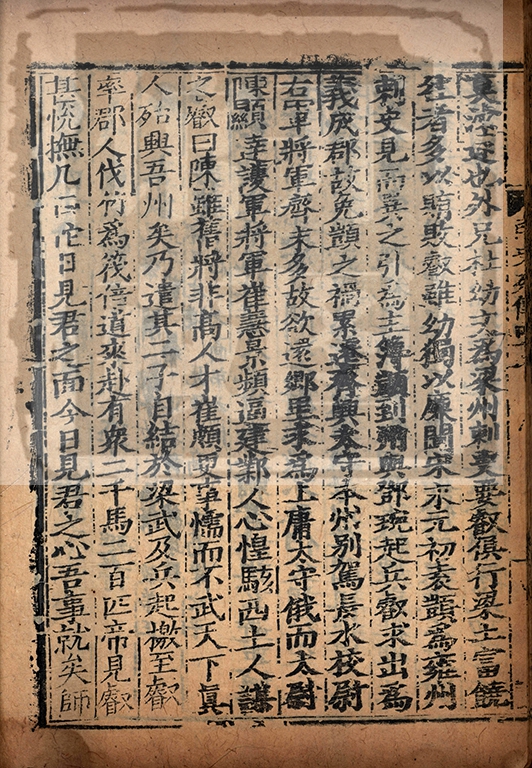 莫汝逮也外兄杜幼文為梁州刺史要叡俱行梁土富饒
往者多以賄敗叡雖幼獨以廉聞宋永元初袁顗為雍州
刺史見而異之引為主簿顗到州與鄧琬起兵叡求出為
義成郡故免顗之禍累遷齊興太守本州別駕長水校尉
右軍將軍齊末多故欲還鄉里求為上庸太守俄而太尉
陳顯達護軍將軍崔慧景頻逼建鄴人心惶駭西土人謀
之叡曰陳雖舊將非高人才崔頗更事懦而不武天下眞
人殆興吾州矣乃遣其二子自結於梁武及兵起檄至叡
率郡人伐竹為筏倍道來赴有衆二千馬二百匹帝見叡
甚悅撫几曰佗日見君之面今日見君之心吾事就矣師